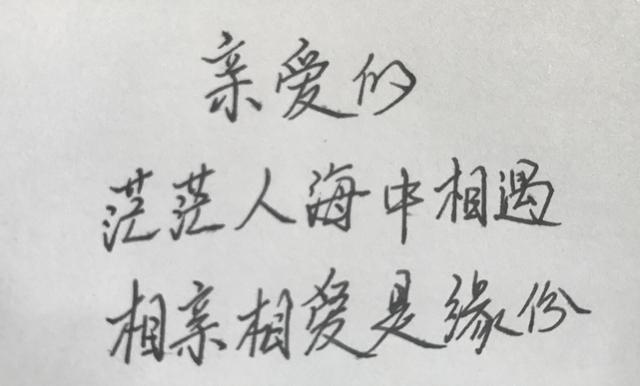 亲爱的
茫茫人海中相遇
相亲相爱是缘份